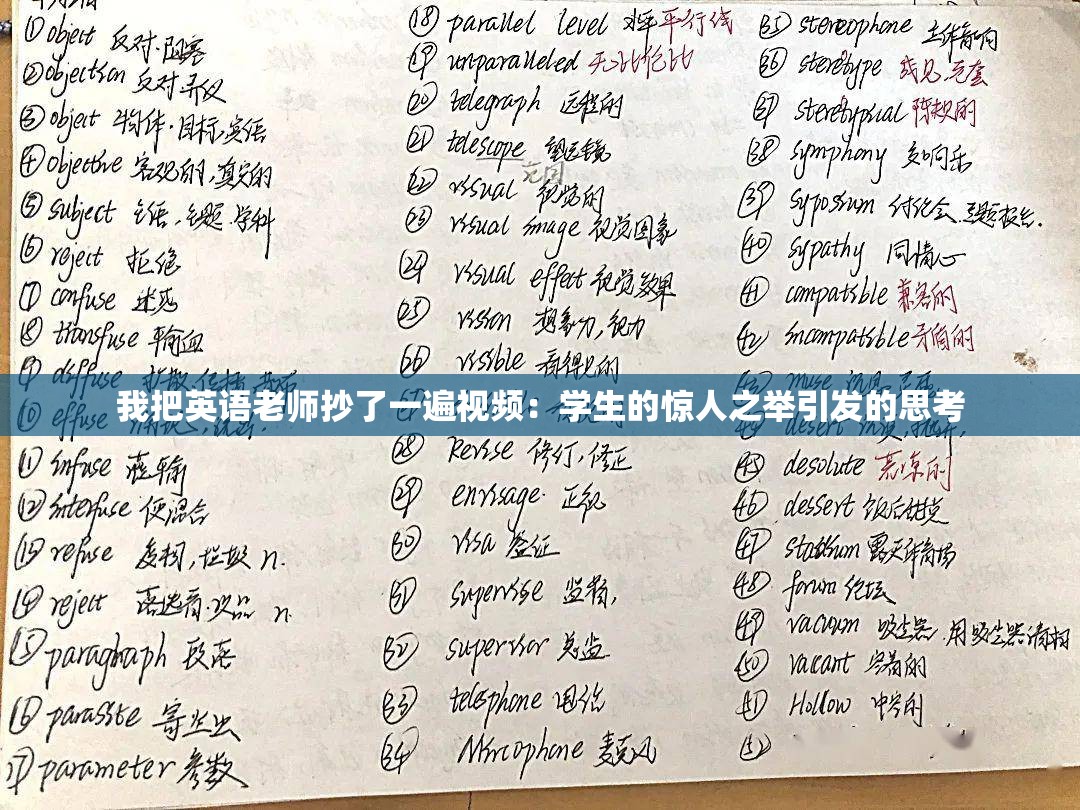 ① object 反对·阻塞
② objection 反对 异议
③ object 物体·目标,宾语
④ objective 客观的,真实的
⑤ subject 主语,主题,学科
⑥ reject 拒绝
⑦ confuse 迷惑
⑧ transfuse 输血
⑨ diffuse
⑩ effuse
我把英语老师抄了一遍视频：学生的惊人之举引发的思考
⑪ infuse 灌输
⑫ interfuse 使混合
⑬ refuse 废物,垃圾 n.
⑭ reject 落选者·次品 n
⑮ paragraph 段落
⑯ parasite 寄生虫
⑰ parameter 参数
⑱ parallel level 水平 平行线
⑲ unparalleled 无比伦比
⑳ telegraph 远程的
㉑ telescope 望远镜
㉒ visual 视觉的
㉓ visual image 视觉图象
㉔ visual effect 视觉效果
㉕ vision 想象力,视力
㉖ visible 看得见的
㉘ Revise 修订,修正
㉙ envisage 正视
㉚ visa 签证
㉛ supervise 监督,
㉜ supervisor 总监
㉝ telephone 电话
㉞ Microphone 麦克风
㉟ stereophone 立体音响
㊱ steretype 成见,死套
㊲ steretypical 陈规的
㊳ symphony 交响乐
㊴ syposium 讨论会,主题报告.
㊵ sypathy 同情心
㊶ compatible 兼容的
㊷ incompatible 矛盾的
muse
desert
㊺ desolute 荒凉的
㊻ dessert 饭后甜点
㊼ stadium 露天体育场
㊽ forum 论坛
㊾ vacuum 吸尘器,用吸尘器清扫
㊿ vacant 空着的
51 Hollow 中空的
52